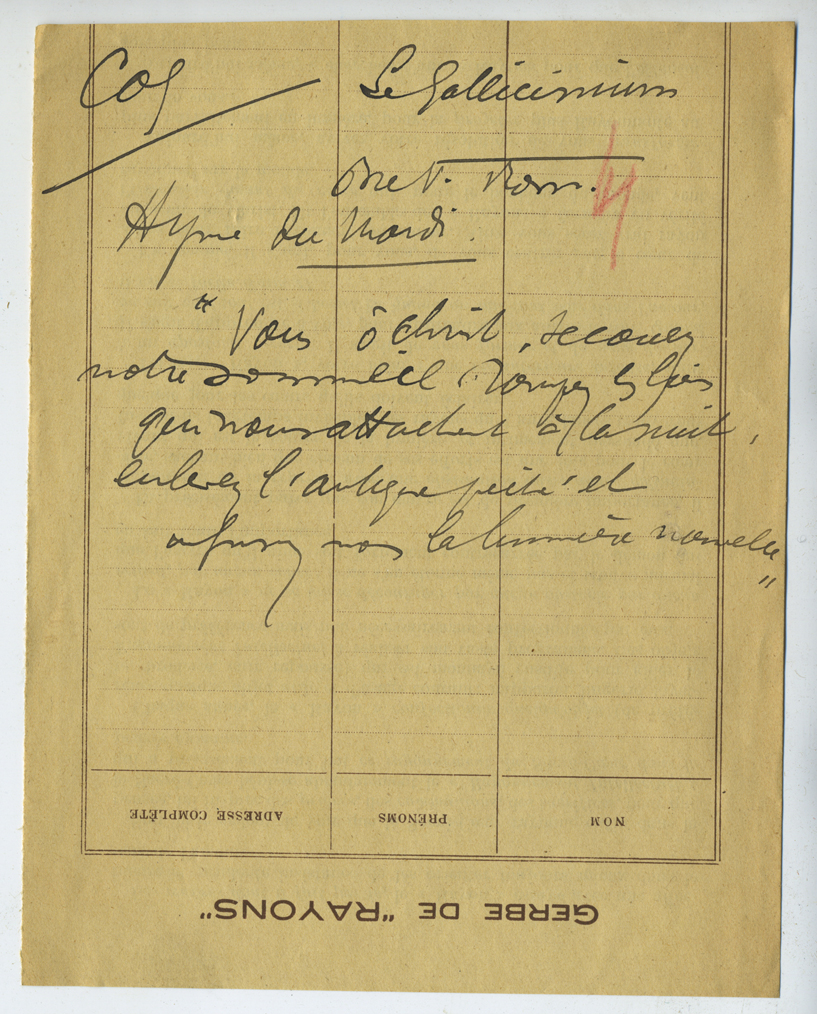 Coq
Le Gallicinium
Brev. Rom.
4
Hymne du Mardi.
"Vous ô Christ, secouez
notre sommeil Rompez les liens
qui nous attachent à la nuit,
enlevez l'antique péché et
infusez nous la lumière nouvelle
"
ADRESSE COMPLÈTE
PRÉNOMS
NOM
GERBE DE "RAYONS"